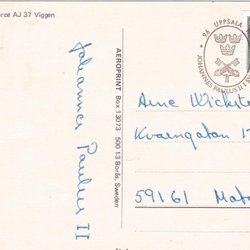 orce AJ 37 Viggen
Johannes Paulus II
AEROPRINT Box 13073 500 13 Borås, Sweden
96 UPPSALA
JOHANNES PAULUS II I S
Arne Wickste
Kvarngatan 1
59161 Mota